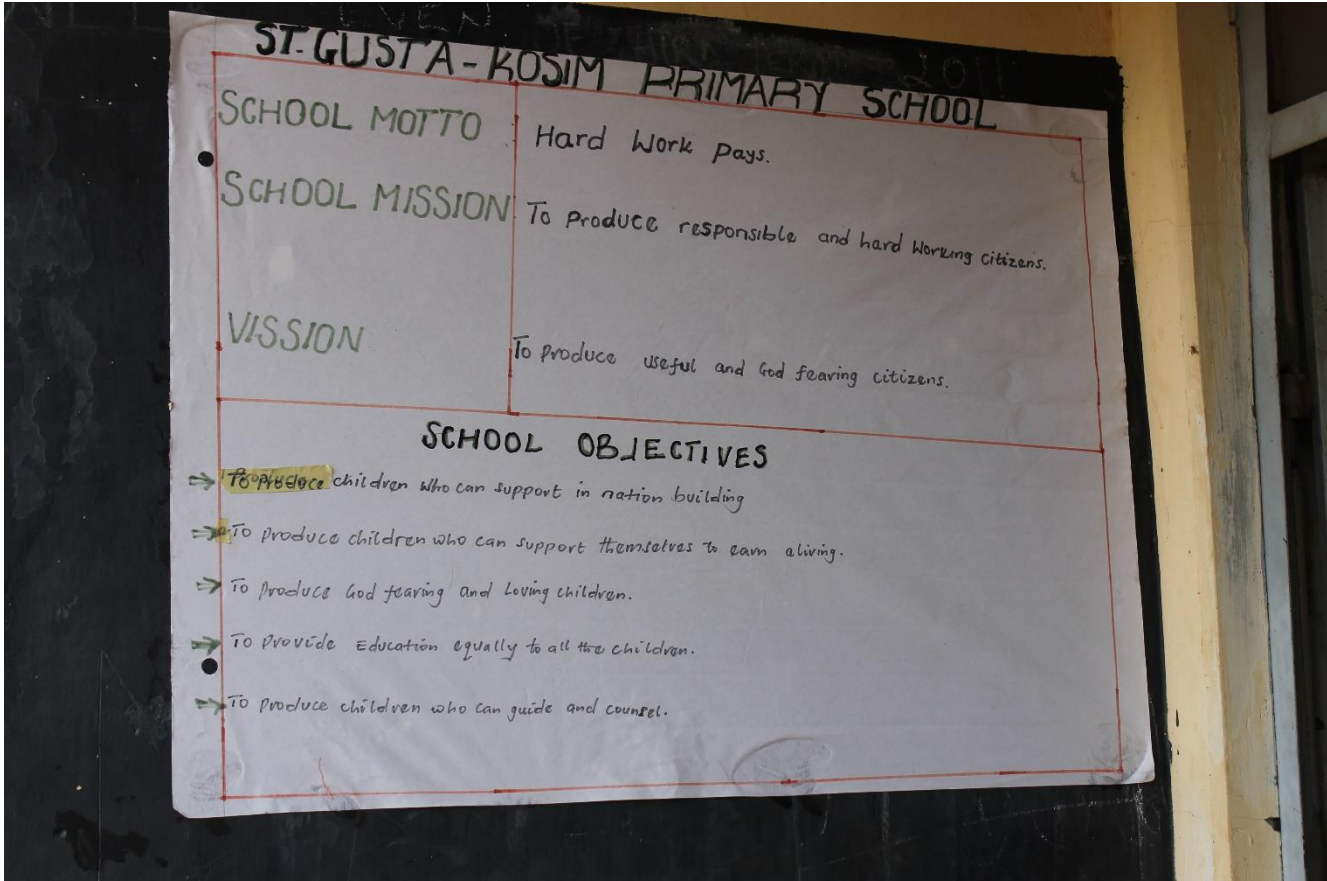 ST. GUSTA - KOSIM PRIMARY SCHOOL
SCHOOL MOTTO Hard Work Pays.
SCHOOL MISSION To Produce responsible and hard Working citizens.
VISSION To Produce useful and God fearing citizens.
SCHOOL OBJECTIVES
⇒ To Produce children who can support in nation building
⇒ To Produce children who can support themselves to earn aliving.
⇒ To Produce God fearing and Loving children.
⇒ To Provide Education equally to all the children.
⇒ To Produce children who can guide and counsel.
2011